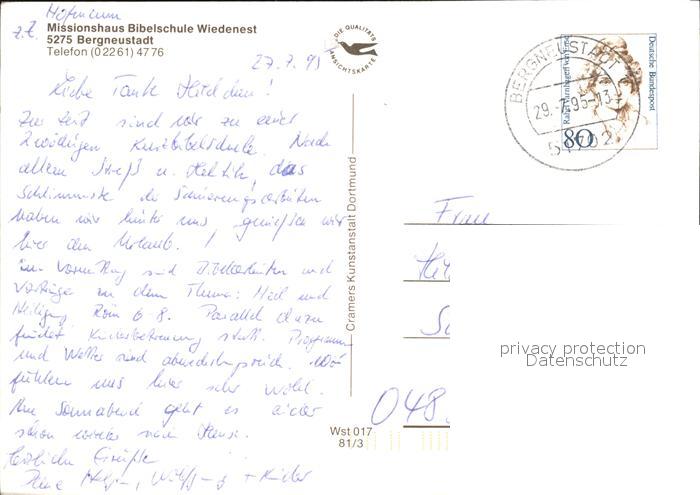 z.Z.
Missionshaus Bibelschule Wiedenest
5275 Bergneustadt
Telefon (0 22 61) 47 76
DIE QUALITÄTS
ANSICHTSKARTE
27.7.95
Liebe Tante
Zur Zeit sind wir zu einer
2 wöchigen Kurzbibelschule. Nach
allem Streß u. Hektik, das
Schlimmste der Sanierungsarbeiten
haben wir hinter uns genießen wir
hier den Urlaub. !
Am Vormittag sind Bibelarbeiten und
Vorträge zu dem Thema: Heil und
Heiligung Röm 6-8. Parallel dazu
findet Kinderbetreuung statt. Programm
und Wetter sind abwechslungsreich. Wir
fühlen uns hier sehr wohl.
Am Sonnabend geht es leider
schon wieder nach Hause.
Herzliche Grüße
+ Kinder
Cramers Kunstanstalt Dortmund
Wst 017
81/3
BERGNEUSTADT
29.-7.95-13
51702
Deutsche Bundespost
80
Frau
048
privacy protection
Datenschutz